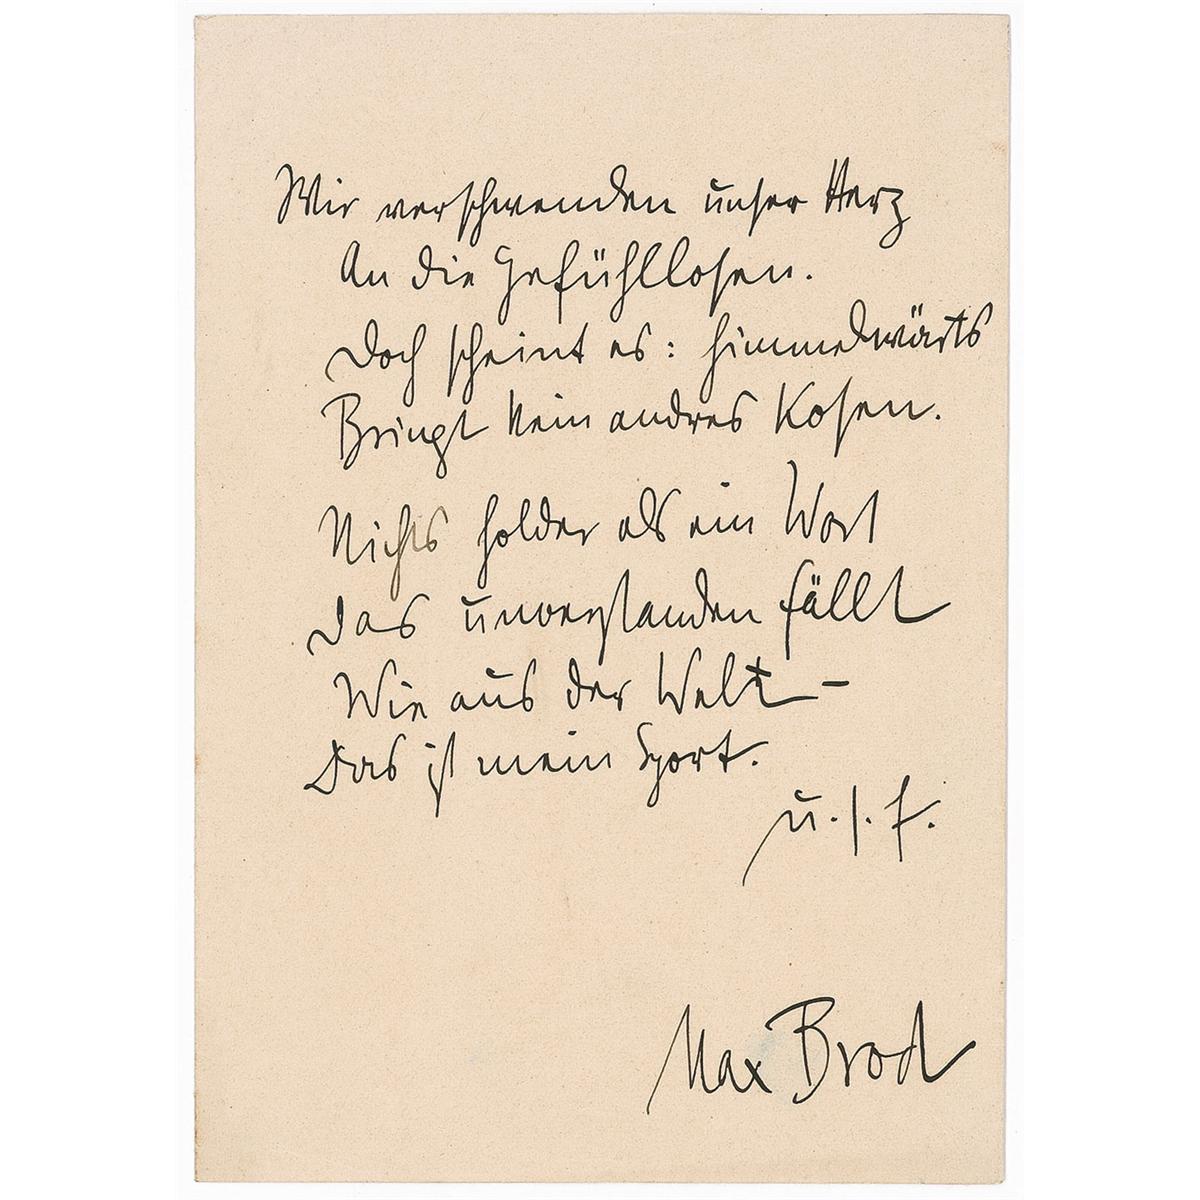 Wir verschwenden unser Herz
An die Gefühllosen.
Doch scheint es: himmelwärts
Bringt kein andres Kosen.
Nichts holder als ein Wort
Das unverstanden fällt
Wie aus der Welt –
Das ist mein Sport.
u. s. f.
Max Brod